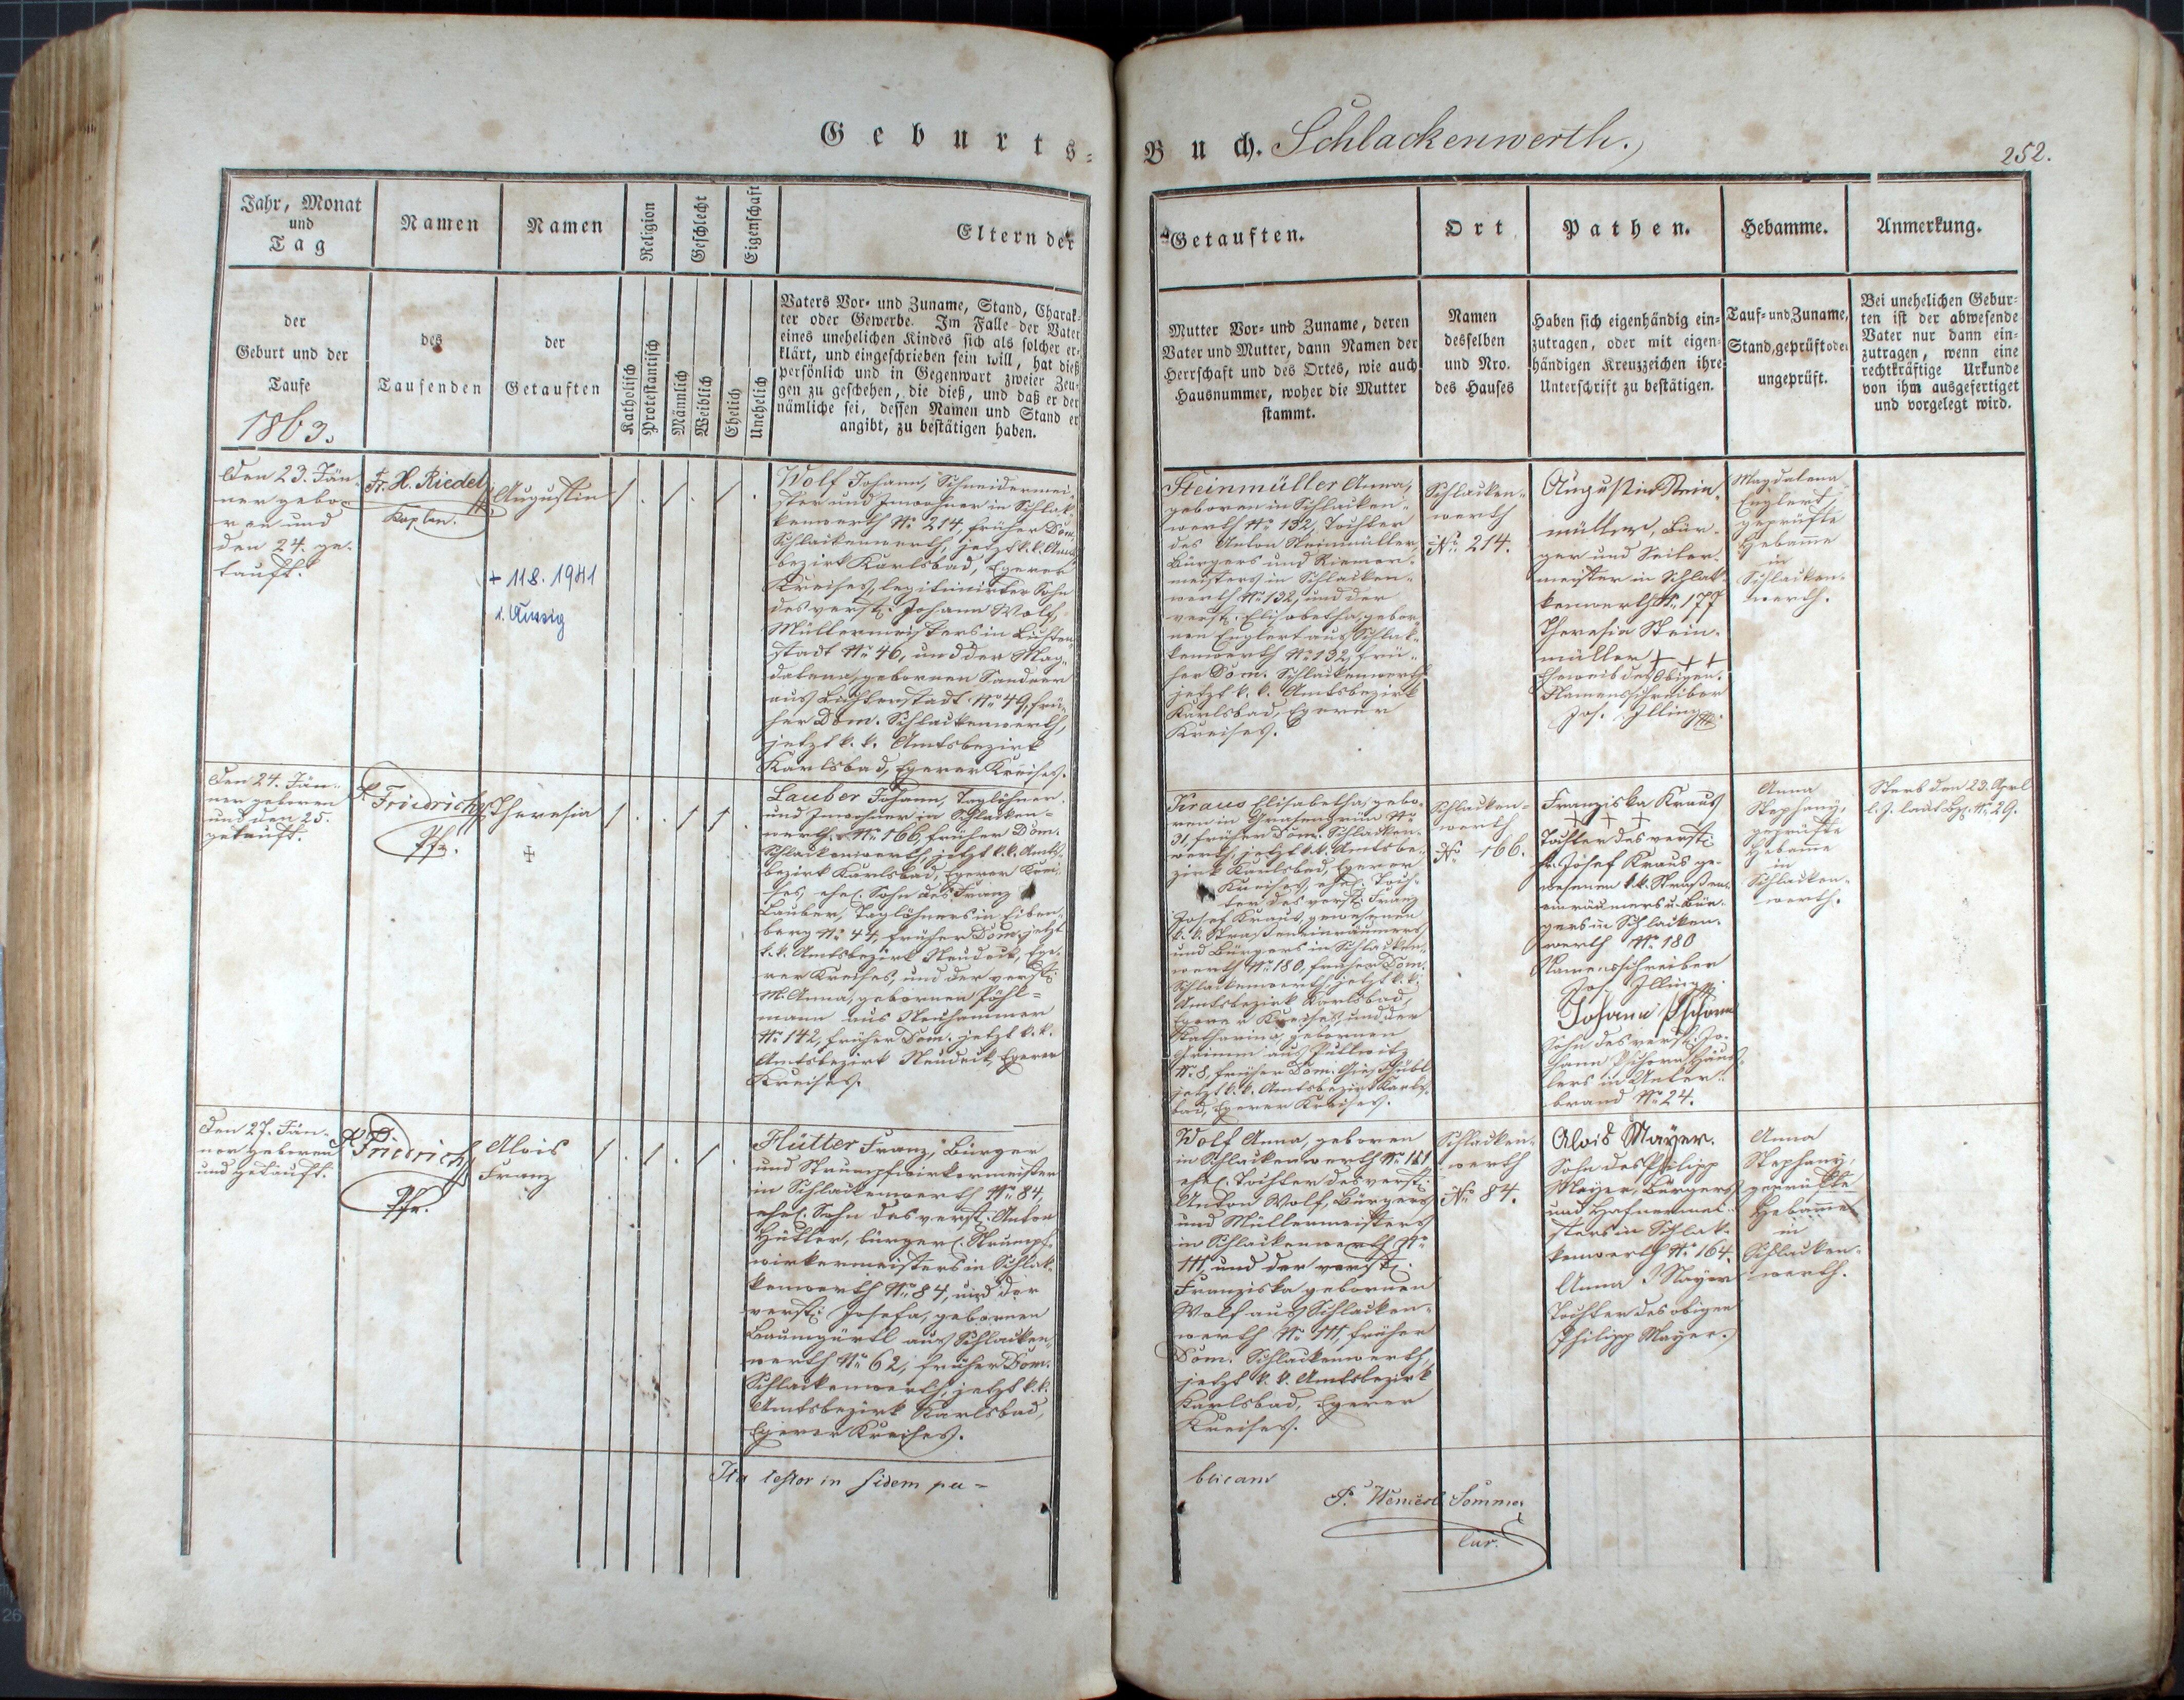 Geburts-
Buch. Schlackenwerth.
252.
Jahr, Monat
und
Tag
Namen
Namen
Religion
Geschlecht
Eigenschaft
Eltern der
der
Geburt und der
Taufe
1863.
des
Taufenden
der
Getauften
Katholisch
Protestantisch
Männlich
Weiblich
Ehelich
Unehelich
Vaters Vor- und Zuname, Stand, Charak-
ter oder Gewerbe. Im Falle der Vater
eines unehelichen Kindes sich als solcher er-
klärt, und eingeschrieben sein will, hat dieß
persönlich und in Gegenwart zweier Zeu-
gen zu geschehen, die dieß, und daß er der
nämliche sei, dessen Namen und Stand er
angibt, zu bestätigen haben.
Getauften.
Ort
Pathen.
Hebamme.
Anmerkung.
Mutter Vor- und Zuname, deren
Vater und Mutter, dann Namen der
Herrschaft und des Ortes, wie auch
Hausnummer, woher die Mutter
stammt.
Namen
desselben
und Nro.
des Hauses
Haben sich eigenhändig ein-
zutragen, oder mit eigen-
händigen Kreuzzeichen ihre
Unterschrift zu bestätigen.
Tauf- und Zuname,
Stand, geprüft oder
ungeprüft.
Bei unehelichen Gebur-
ten ist der abwesende
Vater nur dann ein-
zutragen, wenn eine
rechtkräftige Urkunde
von ihm ausgefertiget
und vorgelegt wird.
Den 23. Jän-
ner gebo-
ren und
den 24. ge-
tauft.
Fr. H. Riedel
Kaplan.
Augustin
+ 11 8. 1941
i. Aussig
Wolf Johann, Schneidermei-
ster und Inwohner in Schlak-
kenwerth No 214, früher Dom.
Schlackenwerth, jetzt k. k. Amts-
bezirk Karlsbad, Egerer
Kreises, legitimirter Sohn
des verst. Johann Wolf,
Müllermeisters in Lichten-
stadt No 46, und der Mag-
dalena, gebornen Sandner
aus Lichtenstadt No 49, frü-
her Dom. Schlackenwerth,
jetzt k. k. Amtsbezirk
Karlsbad, Egerer Kreises.
Steinmüller Anna,
geboren in Schlacken-
werth No 132, Tochter
des Anton Steinmüller,
Bürgers und Riemer-
meisters in Schlacken-
werth No 132, und der
verst. Elisabetha, gebor-
nen Englert aus Schlak-
kenwerth No 132, frü-
her Dom. Schlackenwerth
jetzt k. k. Amtsbezirk
Karlsbad, Egerer
Kreises.
Schlacken-
werth
No. 214.
Augustin Stein-
müller, Bür-
ger und Seiler-
meister in Schlak-
kenwerth No 177
Theresia Stein-
müller + + +
Eheweib des Obigen.
Namensschreiber
Jos. Illing
Magdalena
Englert
geprüfte
Hebamme
in
Schlacken-
werth.
Den 24. Jän-
ner geboren
und den 25.
getauft.
Friedrich
Pfr.
Theresia
Lauber Johann, Taglöhner
und Inwohner in Schlacken-
werth No 166, früher Dom.
Schlackenwerth, jetzt k. k. Amts-
bezirk Karlsbad, Egerer Krei-
ses, ehel. Sohn des Franz
Lauber, Taglöhners in Eiben-
berg No 44, früher Dom. jetzt
k. k. Amtsbezirk Neudeck, Ege-
rer Kreises, und der verst.
M. Anna, gebornen Pöhl-
mann aus Neuhammer
No 142, früher Dom. jetzt k. k.
Amtsbezirk Neudeck, Egerer
Kreises.
Kraus Elisabetha, gebo-
ren in Grasengrün No
31, früher Dom. Schlacken-
werth, jetzt k. k. Amtsbe-
zirk Karlsbad, Egerer
Kreises, ehel. Toch-
ter des verst. Franz
Josef Kraus, gewesenen
k. k. Straßeneinräumers
und Bürgers in Schlacken-
werth No 180, früher Dom.
Schlackenwerth, jetzt k. k.
Amtsbezirk Karlsbad,
Egerer Kreises, und der
Katharina, gebornen
Grimm aus Pullwitz
No 8, früher Dom. Gießhübl
jetzt k. k. Amtsbezirk Karls-
bad, Egerer Kreises.
Schlacken-
werth
No 166.
Franziska Kraus
+ + +
Tochter des verst.
Fr. Josef Kraus ge-
wesenen k. k. Straßen-
einräumers u. Bür-
gers in Schlacken-
werth No 180
Namensschreiber
Jos. Illing
Johann
Sohn des verst. Jo-
hann Häus-
lers in Unter-
brand No 24.
Anna
Stephany,
geprüfte
Hebamme
in
Schlacken-
werth.
Starb den 23. April
l. J. laut No 29.
Den 27. Jän-
ner geboren
und getauft.
Friedrich
Pfr.
Alois
Franz
Hütter Franz, Bürger
und Strumpfwirkermeister
in Schlackenwerth No 84,
ehel. Sohn des verst. Anton
Hütter, bürgerl. Strumpf-
wirkermeisters in Schlak-
kenwerth No 84, und der
verst. Josefa, gebornen
Baumgärtl aus Schlacken-
werth No 62, früher Dom.
Schlackenwerth, jetzt k. k.
Amtsbezirk Karlsbad,
Egerer Kreises.
Wolf Anna, geboren
in Schlackenwerth No 111
ehel. Tochter des verst.
Anton Wolf, Bürgers
und Müllermeisters
in Schlackenwerth No
111, und der verst.
Franziska gebornen
Wolf aus Schlacken-
werth No 111, früher
Dom. Schlackenwerth,
jetzt k. k. Amtsbezirk
Karlsbad, Egerer
Kreises.
Schlacken-
werth
No 84.
Alois Mayer.
Sohn des Philipp
Mayer, Bürgers
und Hafnermei-
sters in Schlak-
kenwerth No 164.
Anna Mayer
Tochter des obigen
Philipp Mayer.
Anna
Stephany,
geprüfte
Hebamme
in
Schlacken-
werth.
Ita testor in fidem pu-
blicam
P. Wenzesl Sommer
Cur.